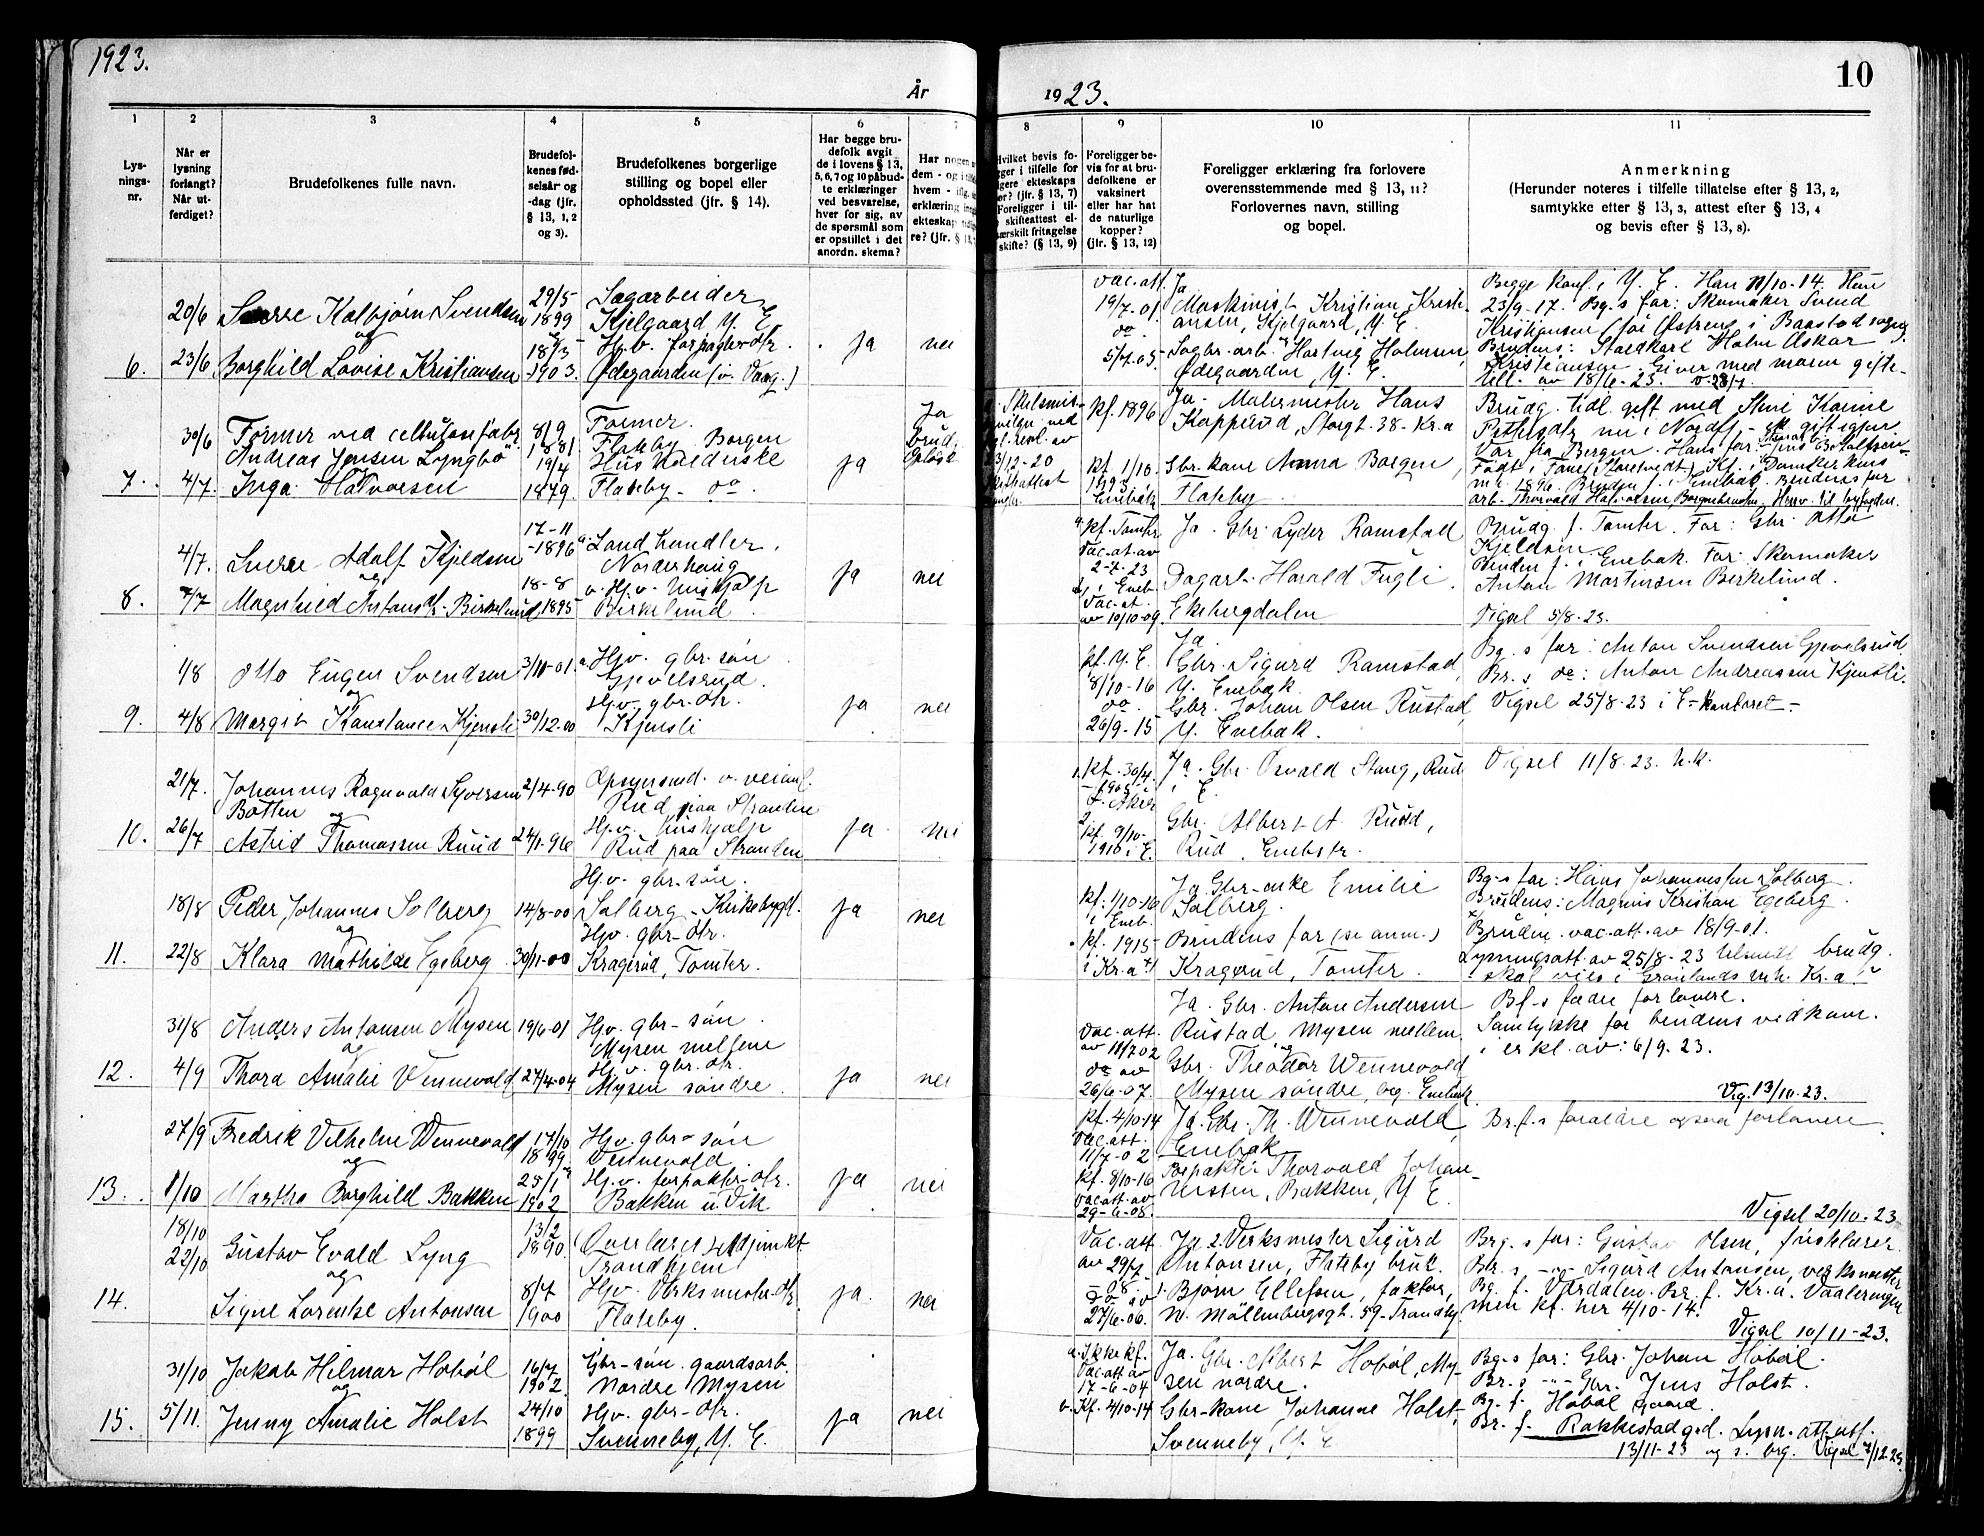 1923.
År
1923.
10
1
2
3
4
5
6
7
8
9
10
11
Lys-
nings-
nr.
Når er
lysning
forlangt?
Når ut-
ferdiget?
Brudefolkenes fulle navn.
Brudefol-
kenes fød-
selsår og
-dag (jfr.
§ 13, 1, 2
og 3).
Brudefolkenes borgerlige
stilling og bopel eller
opholdssted (jfr. § 14).
Har begge bru-
defolk avgit
de i lovens § 13,
5, 6, 7 og 10 påbud-
te erklæringer
ved besvarelse,
hver for sig, av
de spørsmål som
er opstillet i det
anordn. skema?
Har nogen av
dem - og i
hvem - iflg.
erklæring
ekteskap
re? (jfr. § 13,
Hvilket bevis fo-
gger i tilfelle for
ligere ekteskaps
er? (jfr. § 13, 7)
Foreligger i til-
skifteattest el-
særskilt fritagelse
skifte? (§ 13, 9)
Foreligger be-
vis for at bru-
defolkene er
vaksinert
eller har hat
de naturlige
kopper?
(jfr. § 13, 12)
Foreligger erklæring fra forlovere
overensstemmende med § 13, 11?
Forlovernes navn, stilling
og bopel.
Anmerkning
(Herunder noteres i tilfelle tillatelse efter § 13, 2,
samtykke efter § 13, 3, attest efter § 13, 4
og bevis efter § 13, 8).
6.
20/6
23/6
Sverre Kolbjørn Svendsen
og
Borghild Lovise Kristiansen
29/5
1899
18/3
1903.
Sagarbeider
Kjelgaard Y. E.
Hj.v. forpagter dtr.
Ødegaarden (v. Vaag.)
ja
nei
vac. att.
19/7.01.
do
5/7.05.
Ja
Maskinist Kristian Kristi-
ansen, Kjelgaard, Y. E.
Sagbr. arb. Hartvig Halvorsen,
Ødegaarden, Y. E.
Begge konf. i Y. E. Han 11/10-14. Hun
23/9-17. Bg.s far: Skomaker Svend
Kristiansen i Baastad sogn.
Brudens: Oskar
Kristiansen. med moren gifte-
till. av 18/6-23.
7.
30/6
4/7.
Former ved cellulosefabr.
Andreas Jensen Lyngbö
Inga Halvorsen
8/9
1881
19/4
1879.
Former.
Flateby Borgen
Hushalderske
Flateby - do
ja
Ja
brud.
3/12-20
kf. 1896
kf. 1/10.
1893
Enebak
Ja - Malermester Hans
Kopperud, Storgt. 38 - Kr.a
Gbr. kone Anna Borgen,
Flateby.
Brudg. tidl. gift med
nu i
Var fra Bergen. Hans far:
Født i
m. 1896. Bruden f. i Enebak. Brudens far
arb. Thorvald Halvorsen,
8.
4/7.
7/7
Sverre Adolf Kjeldsen
og
Magnhild Antons dtr. Birkelund
17-11
-1896
18-8
1895
Landhandler,
Norderhaug
v. Hj.v. hushjelp
Birkelund
ja
nei
kf. Tomter
Vac. at. av
2-7.23
i Eneb.
Vac. at.
av 10/10-09.
Ja. Gbr. Lyder Ramstad
Dagarb. Harald Fugli.
Ekebergdalen
Brudg. f. Tomter. Far: Gbr. Otto
Kjeldsen.
Bruden f. i Enebak. Far: Skomaker
Anton Martinsen Birkelund.
Vigsel 5/8-23.
9.
1/8
4/8
Otto Eugen Svendsen
og
Margit Konstance Kjensli
3/11-01.
30/12-00
Hjv. gbr. søn
Gjevelsrud.
Hjv. gbr. dtr.
Kjensli
ja
nei
kf. Y. E.
8/10-16
do.
26/9-15
Ja
Gbr. Sigurd Ramstad,
Y. Enebak.
Gbr. Johan Olsen Rustad,
Y. Enebak.
Bg.s far: Anton Svendsen Gjevelsrud.
Br.s do: Anton Andreassen Kjensli.
Vigsel 25/8-23 i E-kontoret -
10.
21/7.
26/7
Johannes Ragnvald Syversen
Botten
og
Astrid Thomassen Ruud
2/4-90
24/1-96
Opsynsmd. v. veianl.
Rud paa Stranden
Hj.v. hushjelp
Rud paa Stranden
ja
nei
1. kf. 30/4.
-1905 i
Aker
2.
kf. 9/10-
1910 i E.
Ja. Gbr. Osvald Stang, Rud
i E.
Gbr. Albert A. Ruud,
Rud. Enebstr.
Vigsel 11/8-23. h.k.
11.
18/8
22/8
Peder Johannes Solberg
og
Klara Mathilde Egeberg
14/8-00
30/11-00
Hj.v. gbr. søn.
Solberg - Kirkebygd.
Hjv. gbr-dtr.
Kragerud, Tomter.
ja
nei
kf. 1/10-16
i Eneb.
kf. 1915-
i Kr.a
Ja Gbr-enke Emilie
Solberg.
Brudens far (se anm.)
Kragerud, Tomter.
Bg-s far: Hans Johannessen Solberg.
Brudens: Magnus Kristian Egeberg.
Bruden. vac. att. av 18/9-01.
Lysningsatt. av 25/8-23 tilsendt brudg.
skal vies i Grønlands mh. Kr.a.
12.
31/8
4/9
Anders Antonsen Mysen
og
Thora Amalie Vennevold
19/6-01
27/4-04
Hjv. gbr-søn.
Mysen mellem
Hj.v. gbr. dtr.
Mysen søndre.
ja
nei
Vac. att.
av 18/7 02
do av
26/6-07.
Ja. Gbr. Anton Andersen
Rustad, Mysen mellem.
og
Gbr. Theodor Wennevold
Mysen søndre, beg. Enebak.
Bf-s fædre forlovere.
Samtykke for brudens vedkom.
i erkl. av: 6/9.23.
Vig. 13/10-23.
13.
27/9
1/10
Fredrik Vilhelm Wennevold
og
Martha Borghild Bakken
17/10
1899
25/1
1902
Hjv. gbr-søn
Vennevold
Hj.v. forpakter-dtr.
Bakken u. Vik.
ja
nei
kf. 4/10-14
Vac. att.
11/7-02
kf. 8/10-16
vac. att. av
29-6-08.
Ja. Gbr. Th. Wennevold,
Enebak
Forpakter Thorvald Johan-
nessen, Bakken, Y. E.
Br.f.s forældre ogsaa forlovere.
Vigsel 20/10-23
14.
18/10
22/10
Gustav Evald Lyng
og
Signe Lorentze Antonsen
13/2
1890
8/7
1900
Overlærer adjunkt
Trondhjem
Hjv. Verksmester-dtr.
Flateby.
ja.
nei
Vac. att
av 29/7
-98-
do av
27/6-06.
Ja 2. Verksmester Sigurd
Antonsen, Flateby bruk.
1. Bjørn Ellefsen, faktor,
N. Möllenbergsgt. 59 - Trondhj.
Brg.s far: Gustav Olsen,
Br.s -"- Sigurd Antonsen, verksmester
Bg. f. Værdalen. Br. f. Kr.a. Vaalerengen
men kf. her 4/10-14.
Vigsel 10/11-23.
15.
31/10
5/11.
Jakob Hilmar Hobøl
og
Jenny Amalie Holst
16/7
1902
24/10
1899
Gbr-søn. gaardsarb.
Nordre Mysen
Hjv. gbr-dtr.
Svenneby, Y. E.
ja
nei
a. Ikke kf.
Vac att av
17-6-04
b. Kf. 4/10-14
Ja. Gbr. Albert Hobøl, My-
sen nordre.
Gbr-kone Johanne Holst,
Svenneby, Y. E
Bg-s far: Gbr. Johan Hobøl.
Br.s -"- Gbr. Jens Holst.
Bg. f. Hobøl gaard.
Br. f. Rakkestad gd. Lysn. att. utf.
13/11-23 og s. brg. Vigsel 7/12-23.